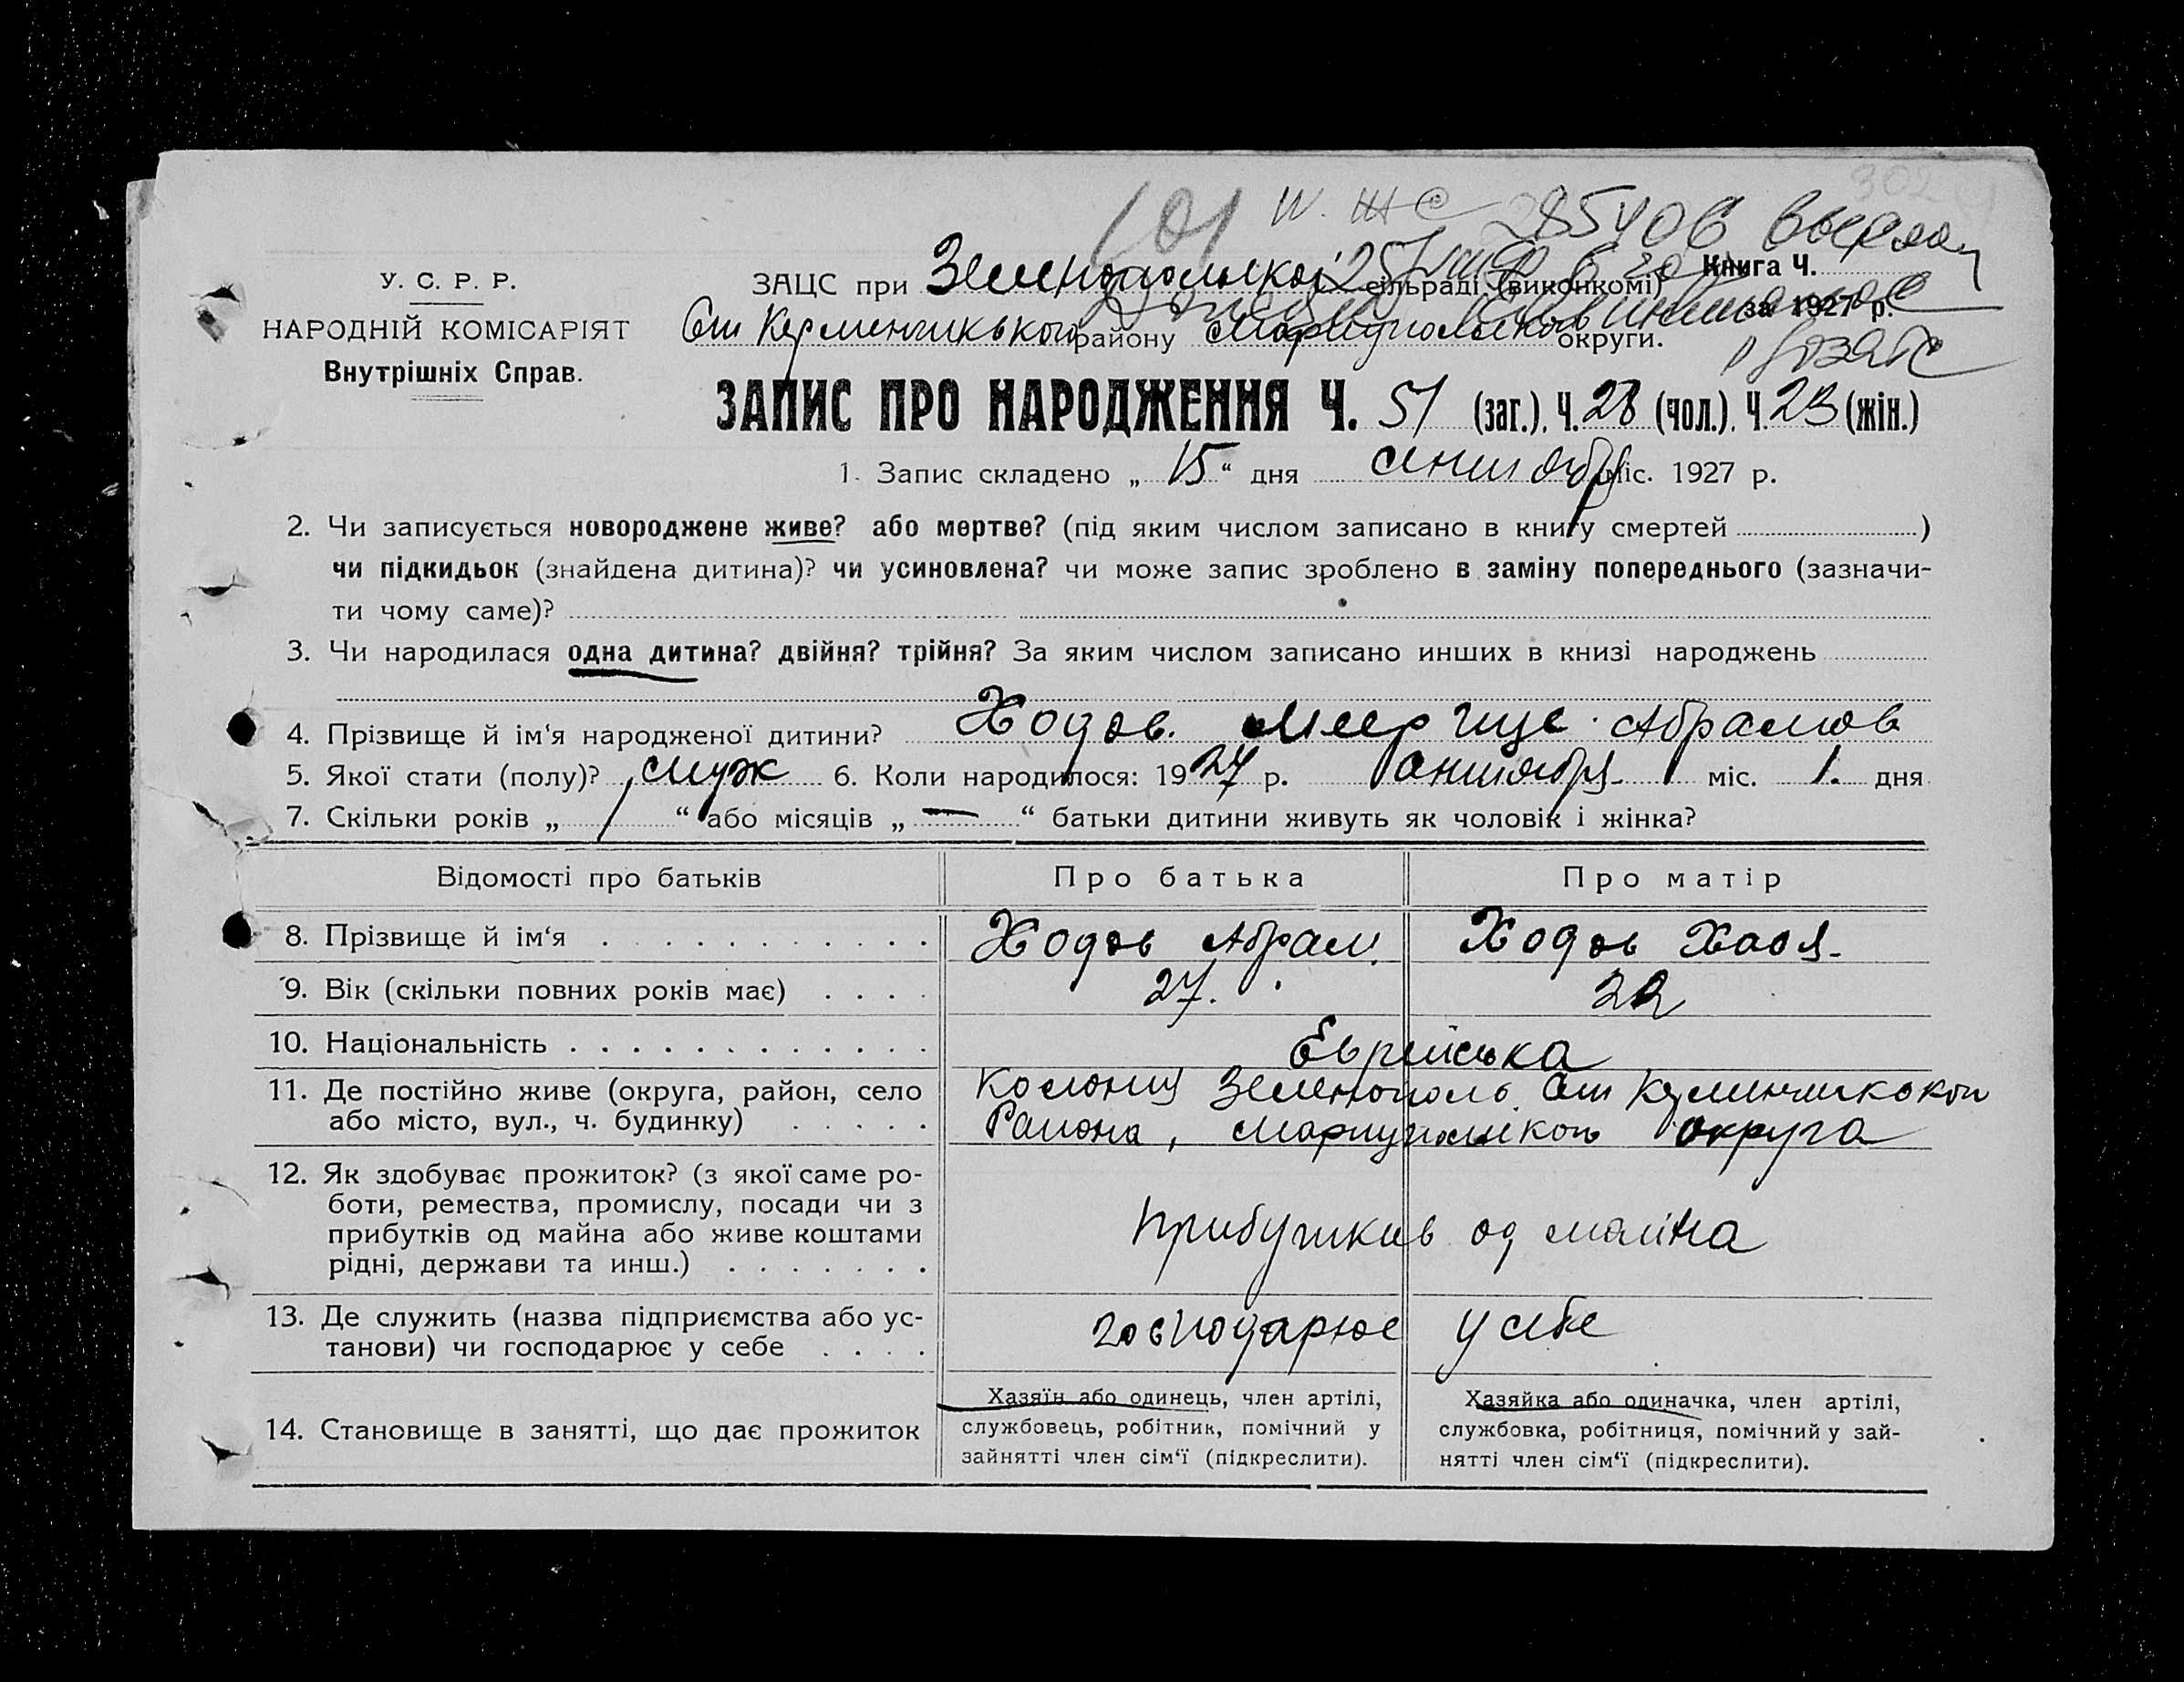 101 302
У. С. Р. Р.
НАРОДНІЙ КОМІСАРІЯТ
Внутрішніх Справ.
ЗАЦС при Зеленопольской сільраді (виконкомі) Книга Ч.
за 1927 р.
Ст Керменчикького району Мариупольского округи.
ЗАПИС ПРО НАРОДЖЕННЯ Ч. 51 (заг.). Ч. 28 (чол.). Ч. 23 (жін.)
1. Запис складено „ 15 “ дня октября міс. 1927 р.
2. Чи записується новороджене живе? або мертве? (під яким числом записано в книгу смертей )
чи підкидьок (знайдена дитина)? чи усиновлена? чи може запис зроблено в заміну попереднього (зазначи-
ти чому саме)?
3. Чи народилася одна дитина? двійня? трійня? За яким числом записано инших в книзі народжень
4. Прізвище й ім‘я народженої дитини? Ходов. Абрамов
5. Якої стати (полу)? муж 6. Коли народилося: 1927 р. октября міс. 1. дня
7. Скільки років „ “ або місяців „ — “ батьки дитини живуть як чоловік і жінка?
Відомості про батьків Про батька Про матір
8. Прізвище й ім‘я Ходов Абрам. Ходов Хася
9. Вік (скільки повних років має) 27. 22
10. Національність Еврейська
11. Де постійно живе (округа, район, село Колония Зеленополь Ст
або місто, вул., ч. будинку) Района, Мариупольского округа
12. Як здобуває прожиток? (з якої саме ро-
боти, ремества, промислу, посади чи з
прибутків од майна або живе коштами
рідні, держави та инш.) прибутків од майна
13. Де служить (назва підприємства або ус-
танови) чи господарює у себе господарює у себе
14. Становище в занятті, що дає прожиток
Хазяїн або одинець, член артілі,
службовець, робітник, помічний у
зайнятті член сім‘ї (підкреслити).
Хазяйка або одиначка, член артілі,
службовка, робітниця, помічний у зай-
нятті член сім‘ї (підкреслити).